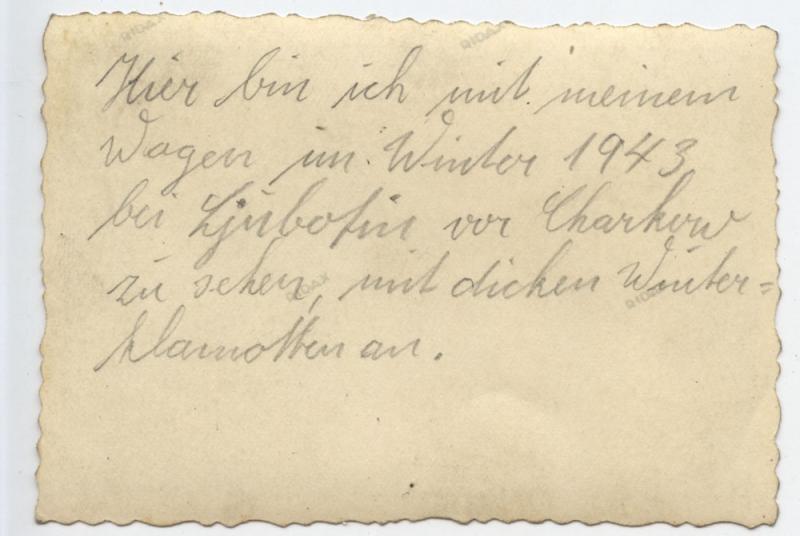 RIDAX RIDAX
Hier bin ich mit meinem
Wagen im Winter 1943
bei Ljubotin vor Charkow
zu sehen, mit dicken Winter=
RIDAX RIDAX
klamotten an.